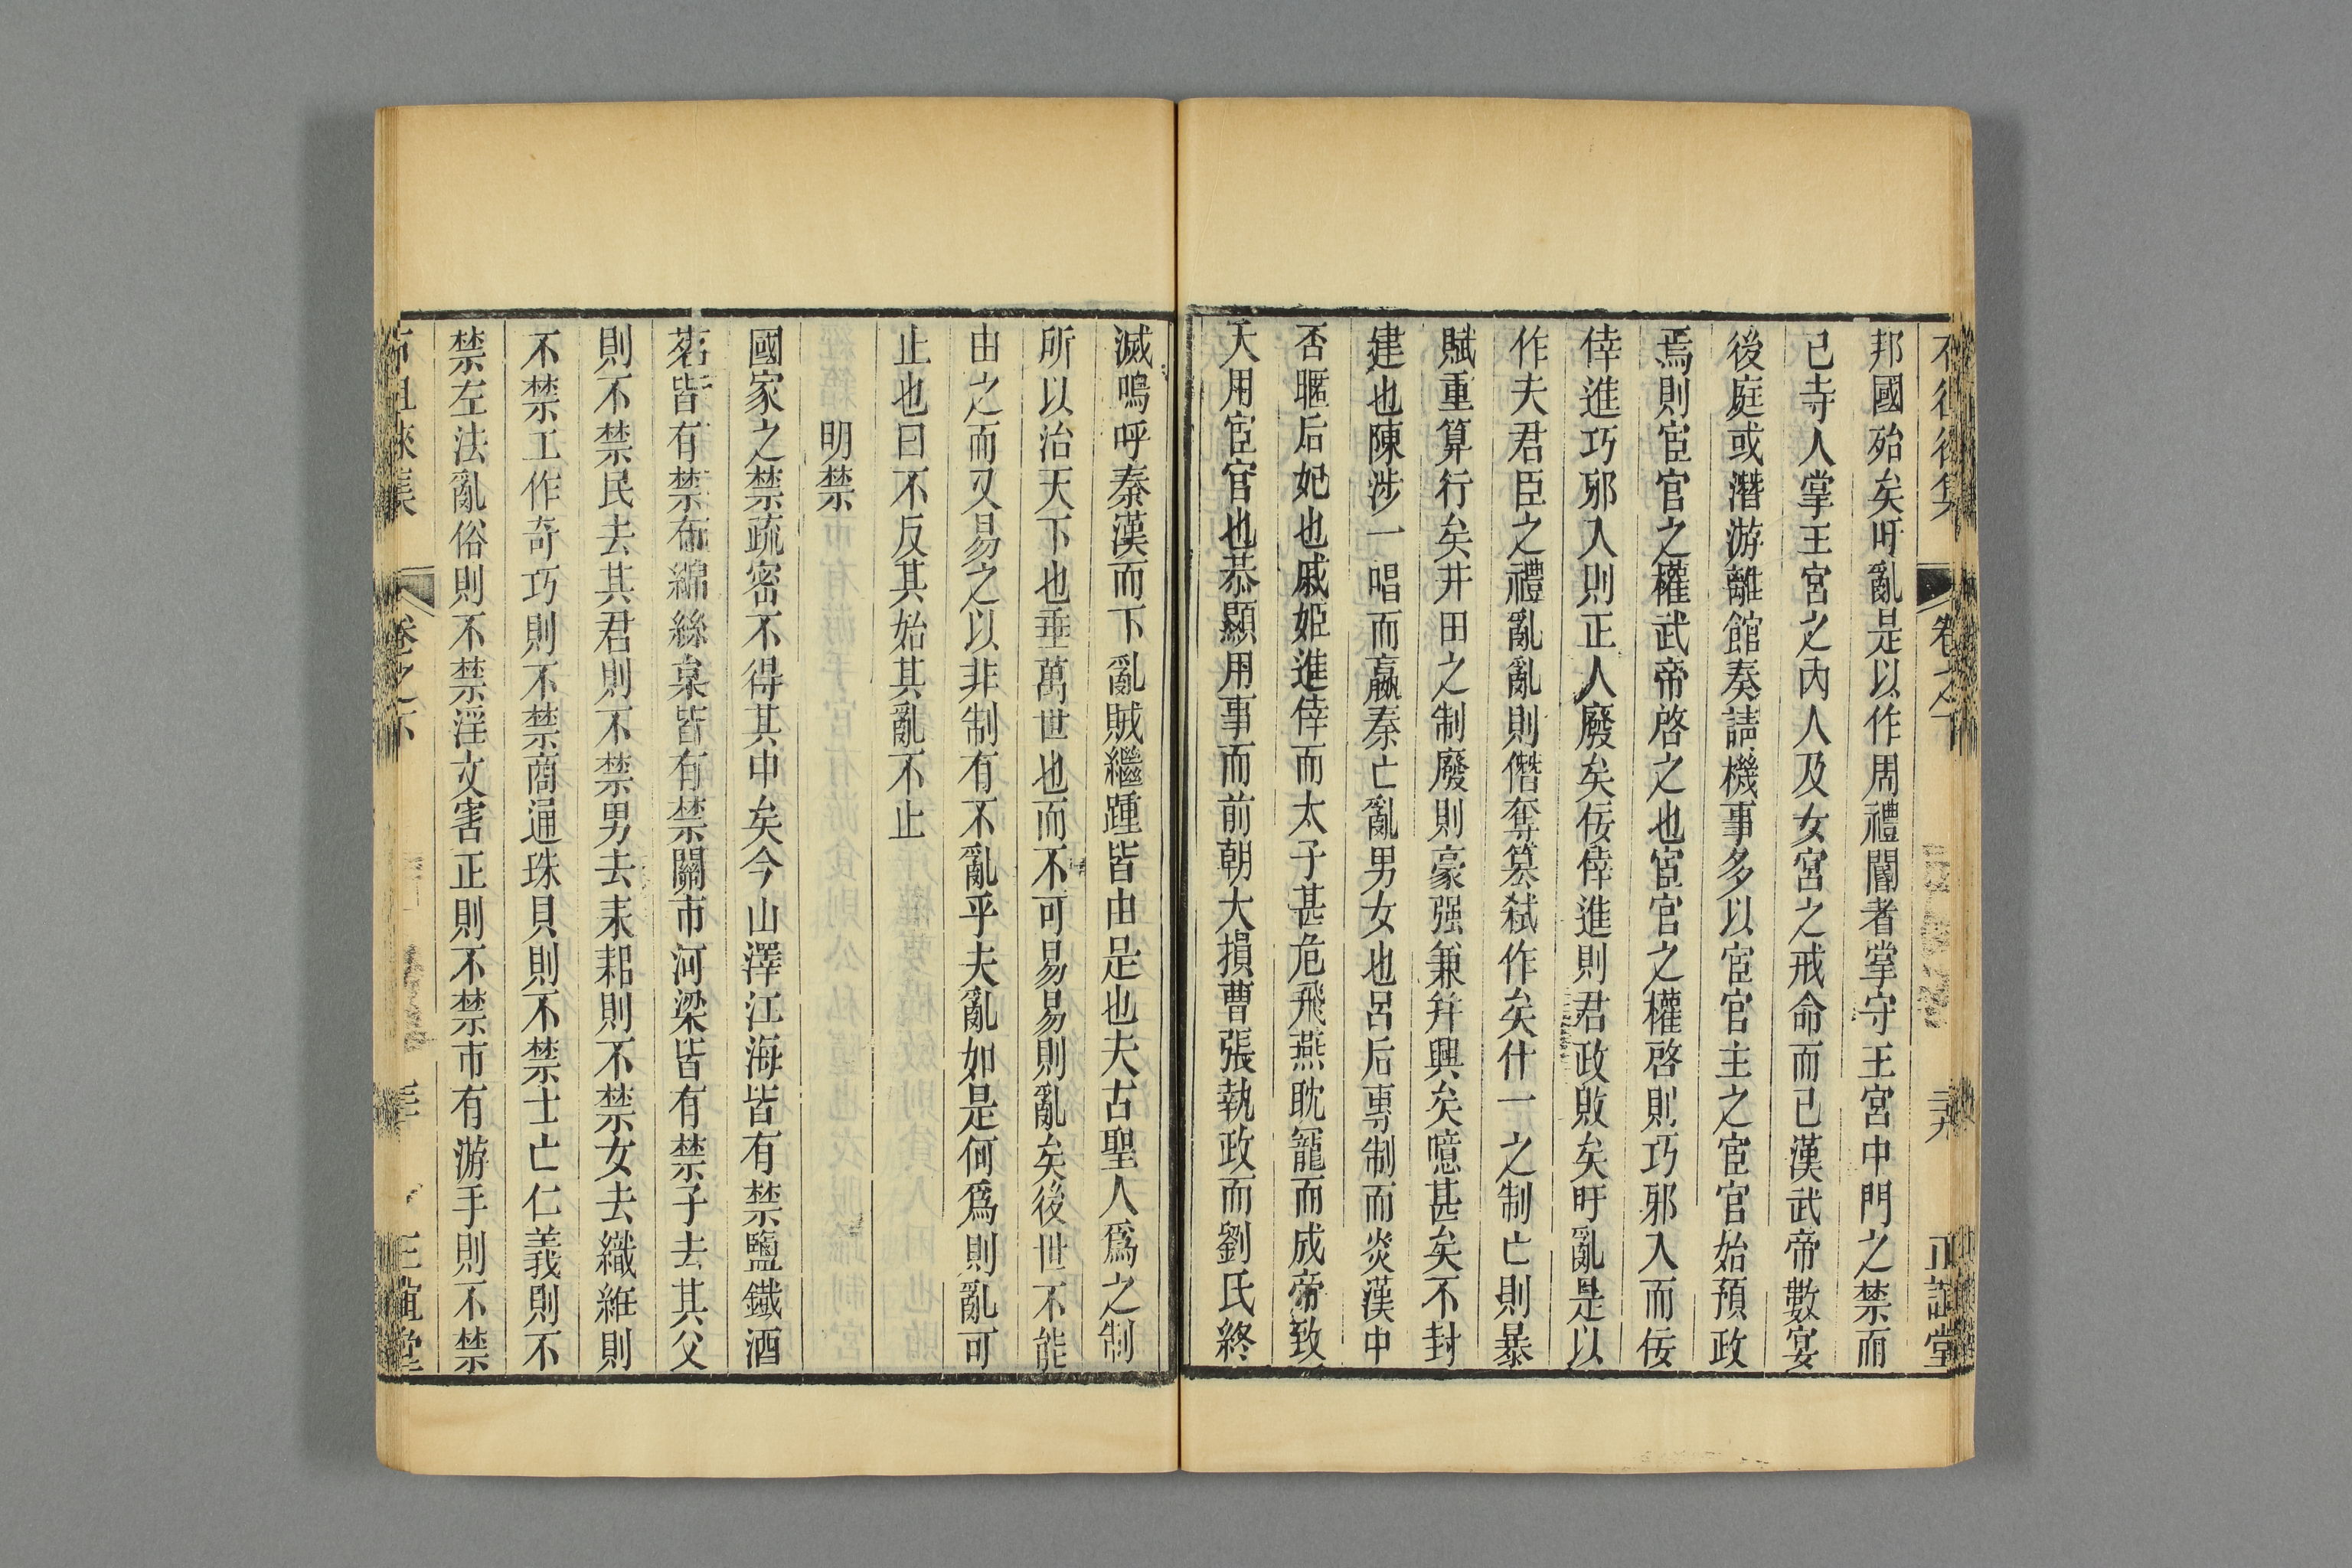 邦國殆矣吁亂是以作周禮閽者掌守王宮中門之禁而
已寺人掌王宮之內人及女宮之戒命而已漢武帝數宴
後庭或潛游離館奏請機事多以宦官主之宦官始預政
焉則宦官之權武帝啓之也宦官之權啓則巧邪入而佞
倖進巧邪入則正人廢矣佞倖進則君政敗矣吁亂是以
作夫君臣之禮亂亂則僭奪篡弒作矣什一之制亡則暴
賦重算行矣井田之制廢則豪强兼并興矣噫甚矣不封
建也陳涉一唱而嬴秦亡亂男女也呂后專制而炎漢中
否暱后妃也戚姬進倖而太子甚危飛燕耽寵而成帝致
夭用宦官也恭顯用事而前朝大損曹張執政而劉氏終
滅嗚呼秦漢而下亂賊繼踵皆由是也夫古聖人爲之制
所以治天下也垂萬世也而不可易易則亂矣後世不能
由之而又易之以非制有不亂乎夫亂如是何爲則亂可
止也曰不反其始其亂不止
明禁
國家之禁疏密不得其中矣今山澤江海皆有禁鹽鐵酒
茗皆有禁布綿絲枲皆有禁關市河梁皆有禁子去其父
則不禁民去其君則不禁男去耒耜則不禁女去織紝則
不禁工作奇巧則不禁商通珠貝則不禁士亡仁義則不
禁左法亂俗則不禁淫文害正則不禁市有游手則不禁
卷之下